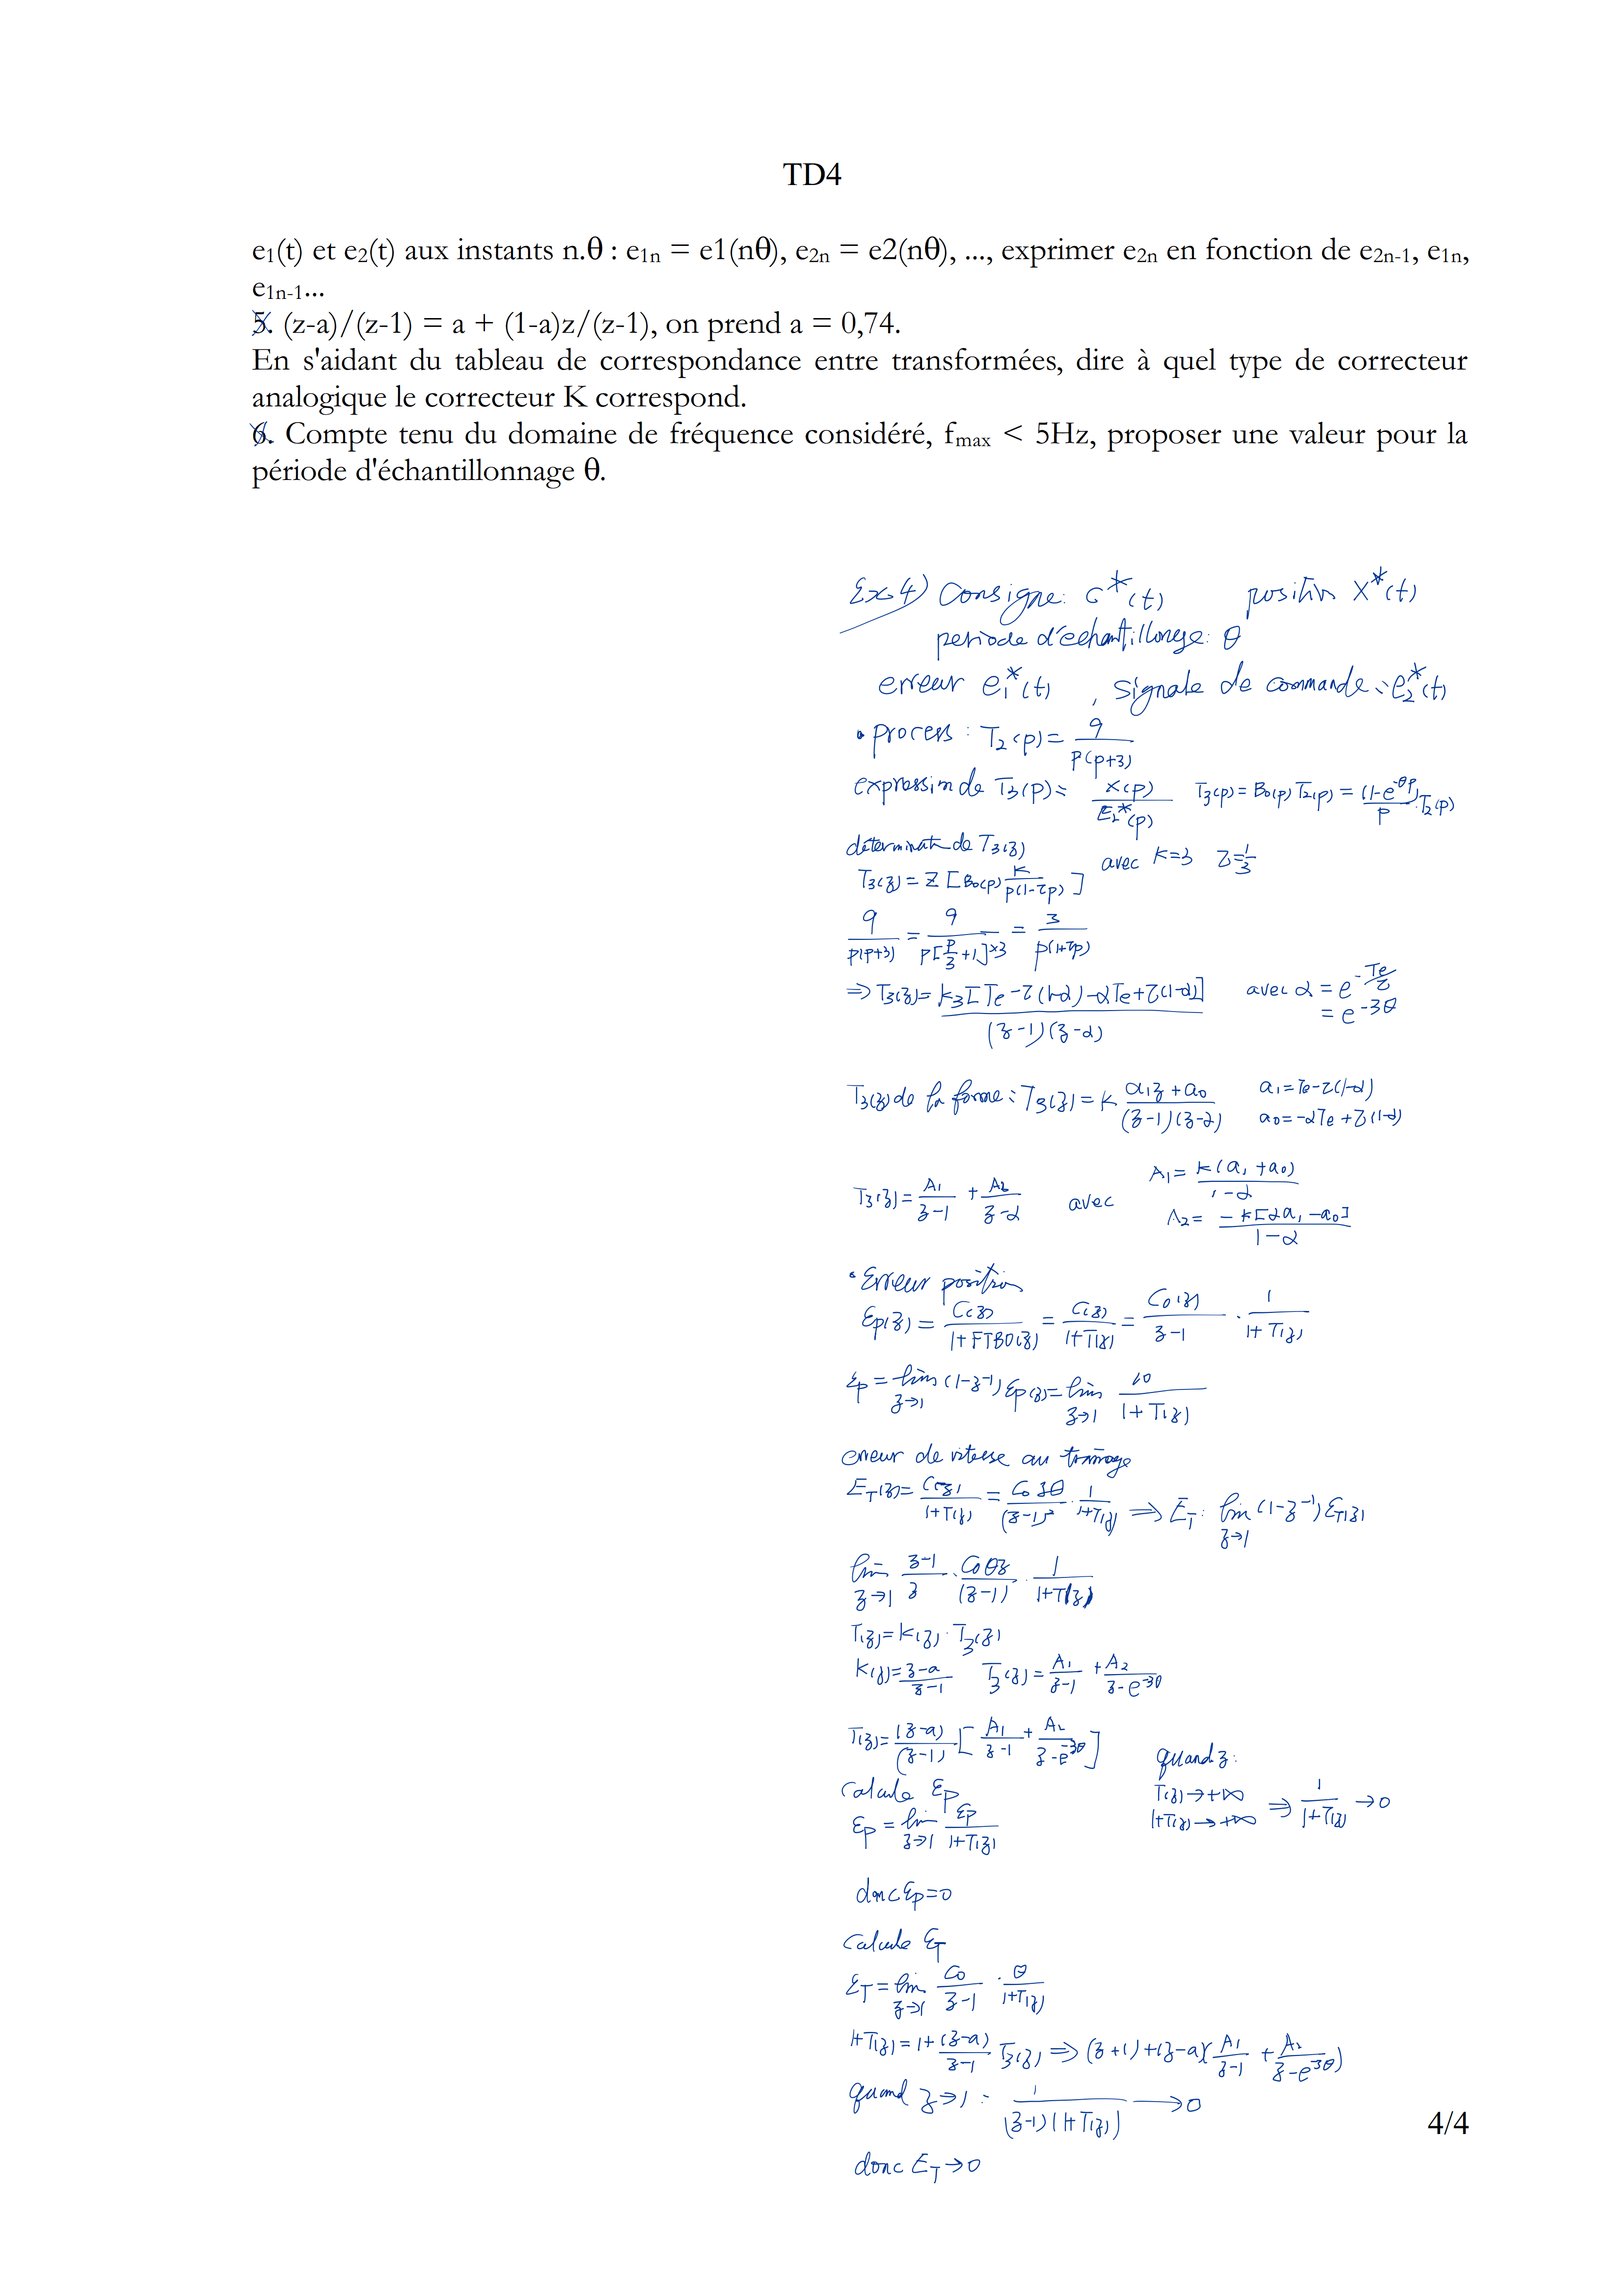 TD4
e1(t) et e2(t) aux instants n.θ : e1n = e1(nθ), e2n = e2(nθ), ..., exprimer e2n en fonction de e2n-1, e1n,
e1n-1...
5. (z-a)/(z-1) = a + (1-a)z/(z-1), on prend a = 0,74.
En s'aidant du tableau de correspondance entre transformées, dire à quel type de correcteur
analogique le correcteur K correspond.
6. Compte tenu du domaine de fréquence considéré, fmax < 5Hz, proposer une valeur pour la
période d'échantillonnage θ.
Ex 4) Consigne: C*(t) position X*(t)
periode d'échantillonage: θ
erreur e1*(t) , signale de commande: e2*(t)
• process : T2(p) = 9/(p(p+3))
expression de T3(p) = X(p)/E2*(p) T3(p) = B0(p) T2(p) = (1-e^-θp)/p . T2(p)
déterminat de T3(z)
T3(z) = Z [B0(p) K/(p(1-τp))] avec K=3 τ=1/3
9/(p(p+3)) = 9/(p[p/3+1]×3) = 3/(p(1+τp))
⇒ T3(z) = k3[Te-τ(1-α)-αTe+τ(1-α)]/((z-1)(z-α)) avec α = e^(-Te/τ)
= e^-3θ
T3(z) de la forme: T3(z) = K (a1z+a0)/((z-1)(z-α)) a1=Te-τ(1-α)
a0=-αTe+τ(1-α)
T3(z) = A1/(z-1) + A2/(z-α) avec A1 = K(a1+a0)/(1-α)
A2 = -K[αa1-a0]/(1-α)
• Erreur position
Ep(z) = C(z)/(1+FTBO(z)) = C(z)/(1+T(z)) = C0(z)/(z-1) . 1/(1+T(z))
εp = lim z→1 (1-z^-1) Ep(z) = lim z→1 C0/(1+T(z))
erreur de vitesse au traînage
ET(z) = C(z)/(1+T(z)) = C0zθ/(z-1)² . 1/(1+T(z)) ⇒ ET: lim z→1 (1-z^-1) ET(z)
lim z→1 (z-1)/z . C0θz/(z-1) . 1/(1+T(z))
T(z) = K(z) . T3(z)
K(z) = (z-a)/(z-1) T3(z) = A1/(z-1) + A2/(z-e^-3θ)
T(z) = (z-a)/(z-1) [A1/(z-1) + A2/(z-e^-3θ)]
quand z:
T(z) → +∞
1+T(z) → +∞ ⇒ 1/(1+T(z)) → 0
calcule εp
εp = lim z→1 Ep/(1+T(z))
donc εp=0
calcule ET
ET = lim z→1 C0/(z-1) . θ/(1+T(z))
1+T(z) = 1+(z-a)/(z-1) T3(z) ⇒ (z+1)+(z-a)(A1/(z-1) + A2/(z-e^3θ))
quand z→1 : 1/((z-1)(1+T(z))) → 0
donc ET → 0
4/4